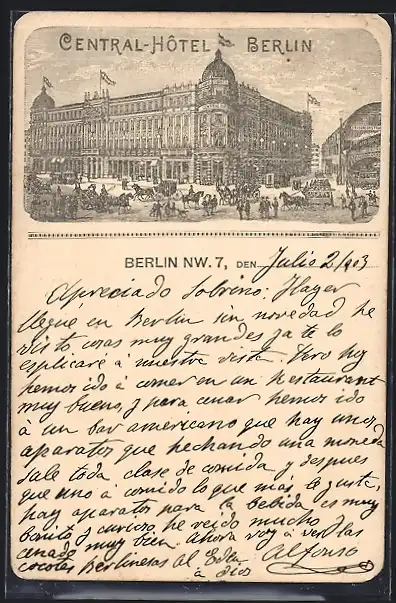 CENTRAL-HÔTEL BERLIN
BERLIN NW. 7, DEN Julio 2/903
Apreciado Sobrino: Hayer
llegué en Berlin sin novedad he
visto cosas muy grandes ya te lo
esplicaré á nuestra vista. Pero hoy
hemos ido á comer en un Restaurant
muy bueno, y para cenar hemos ido
á un bar americano que hay unos
aparatos que hechando una moneda
sale toda clase de comida y despues
que uno á comido lo que mas le gusta,
hay aparatos para la bebida es muy
bonito y curioso he reido mucho
cenado muy bien. Ahora voy á ver las
cocotes Berlinesas al
á Dios Alfonso